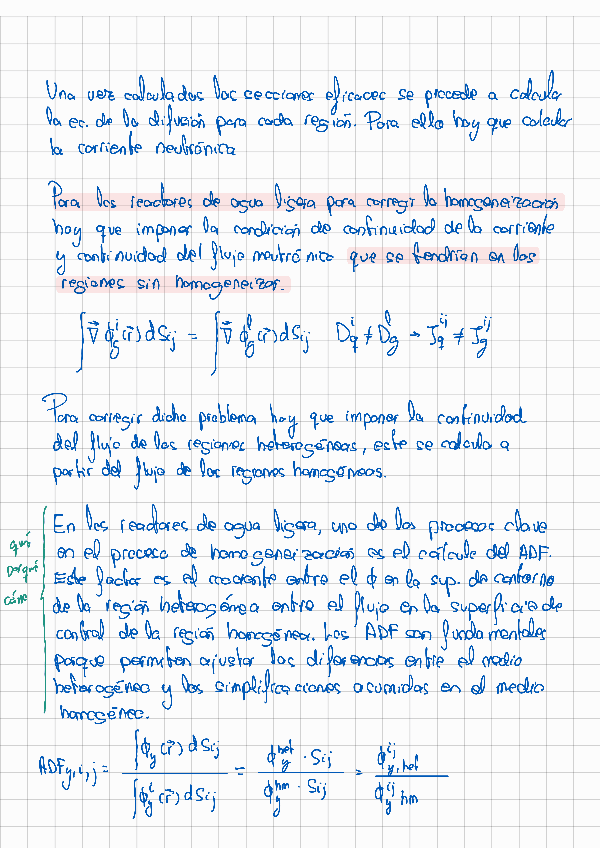 Una vez calculados las secciones eficaces se procede a calcular
la ec. de la difusión para cada región. Para ello hay que calcular
la corriente neutrónica
Para los reactores de agua ligera para corregir la homogeneización
hay que imponer la condición de continuidad de la corriente
y continuidad del flujo neutrónico que se tendrían en las
regiones sin homogeneizar.
∫ ∇⃗ ϕ_g^i (r⃗) dS_ij = ∫ ∇⃗ ϕ_g^l (r⃗) dS_ij D_g^i ≠ D_g^l → J_g^ij ≠ J_g^ij
Para corregir dicho problema hay que imponer la continuidad
del flujo de las regiones heterogéneas, este se calcula a
partir del flujo de las regiones homogéneas.
En los reactores de agua ligera, uno de los procesos clave
en el proceso de homogeneización es el cálculo del ADF.
Este factor es el cociente entre el ϕ en la sup. de contorno
de la región heterogénea entre el flujo en la superficie de
control de la región homogénea. Los ADF son fundamentales
porque permiten ajustar las diferencias entre el medio
heterogéneo y las simplificaciones asumidas en el medio
homogéneo.
qué
porqué
cómo
ADF_y,i,j = ∫ ϕ_y (r⃗) dS_ij / ∫ ϕ_y^i (r⃗) dS_ij = ϕ_y^het · S_ij / ϕ_y^hm · S_ij = ϕ_y,het^ij / ϕ_y^ij hm